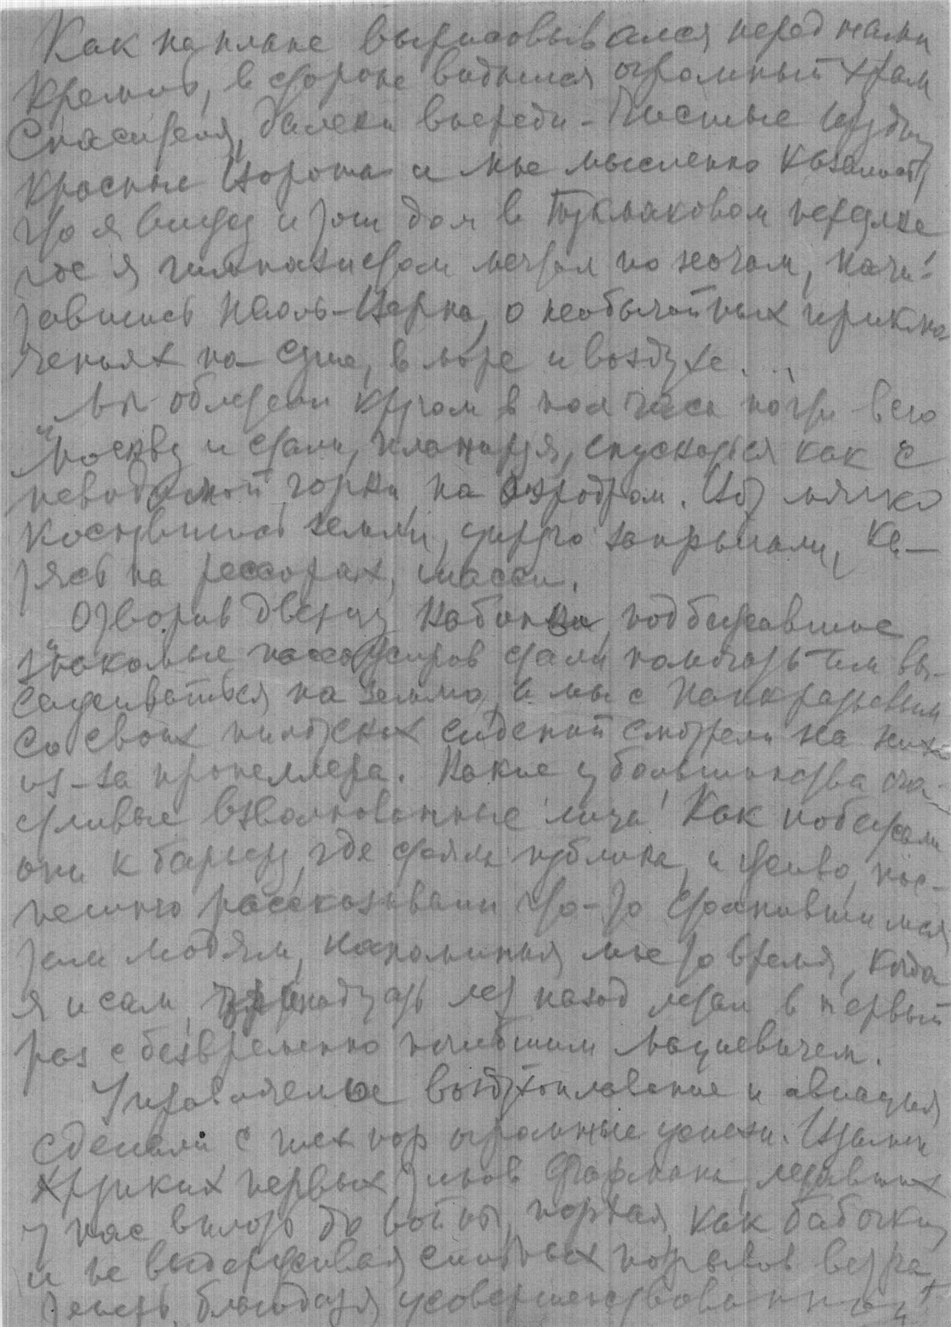 Как на плане вырисовывался перед нами
Кремль, в стороне виднелся огромный храм
Спасителя, далеко впереди - Чистые пруды,
Красные Ворота и мне мысленно казалось,
что я вижу и тот дом в переулке
где я гимназистом мечтал по ночам, начи-
тавшись Жюль-Верна, о необычайных приклю
чениях на суше, в море и воздухе...
Мы облетели кругом в пол часа почти всю
Москву и стали, планируя, спускаться как с
невидимой горки, на аэродром. Вот мягко
коснулись земли, упруго запрыгали, ка-
тясь на рессорах, шасси.
Отворив дверцу кабинки, подбежавшие
знакомые пассажиров стали помогать им вы-
саживаться на землю, а мы с Панкратьевым
со своих пилотских сидений смотрели на них
из-за пропеллера. Какие у большинства сча-
стливые взволнованные лица! Как побежали
они к барьеру, где стояла публика, и живо, пос-
пешно рассказывали что-то столпившимся
там людям, напоминая мне то время, когда
я и сам лет назад летал в первый
раз с безвременно погибшим Мациевичем.
воздухоплавание и авиация
сделали с тех пор огромные успехи. Взамен
хрупких первых типов Фармана, летавших
у нас вплоть до войны, порхая, как бабочки,
и не выдерживая сильных порывов ветра,
теперь, благодаря усовершенствованный